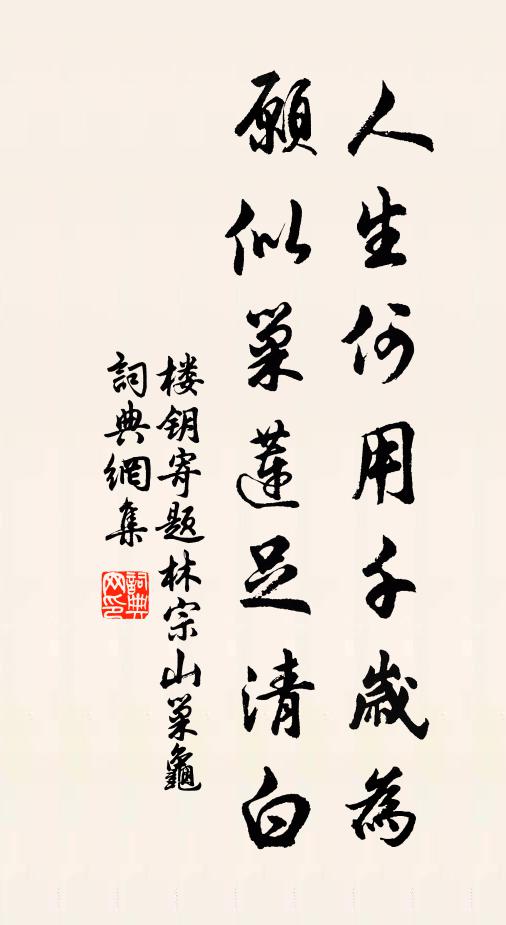 人生何用千歲為
願似巢蓮足清白
楼钥寄题林宗山巢龜
詞典網集
詞典网印